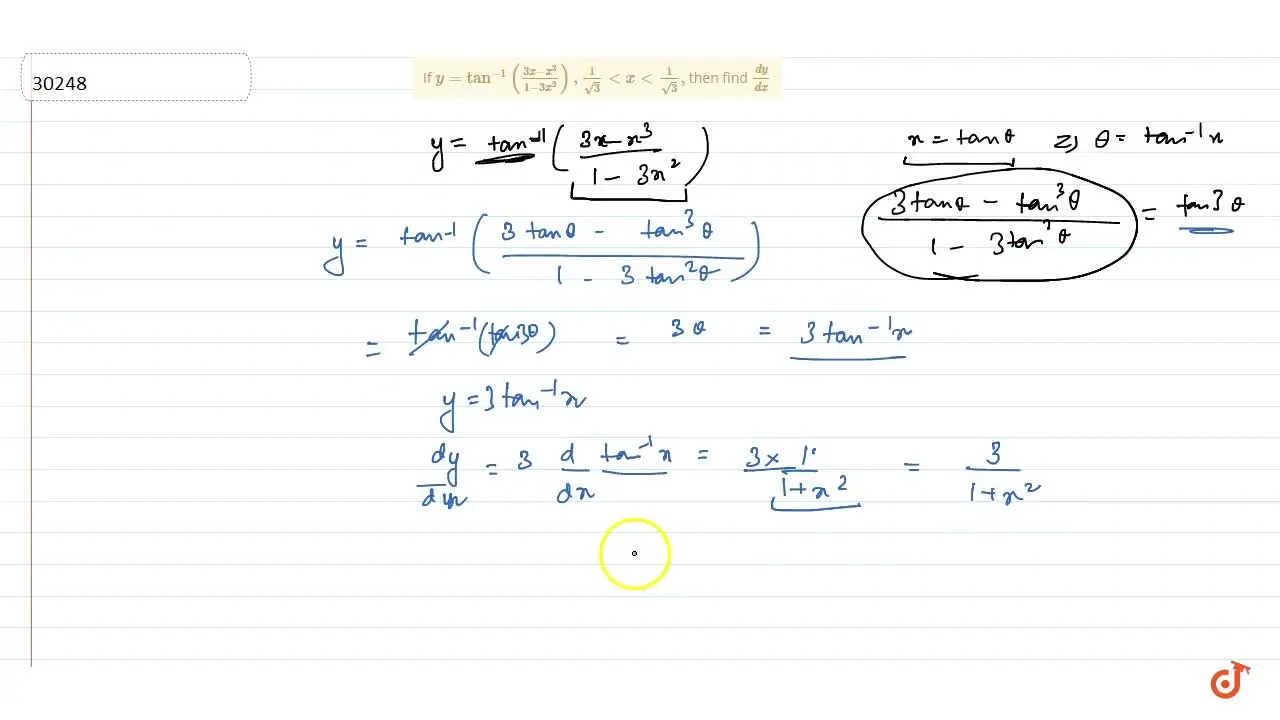 30248
If y = tan⁻¹ (3x−x²/1−3x²), 1/√3 < x < 1/√3, then find dy/dx
y = tan⁻¹ (3x − x³ / 1 − 3x²)
x = tanθ ⇒ θ = tan⁻¹x
3tanθ − tan³θ / 1 − 3tan²θ = tan3θ
y = tan⁻¹ (3 tanθ − tan³θ / 1 − 3 tan²θ)
= tan⁻¹(tan3θ) = 3θ = 3tan⁻¹x
y = 3tan⁻¹x
dy/dx = 3 d/dx tan⁻¹x = 3× 1/1+x² = 3/1+x²